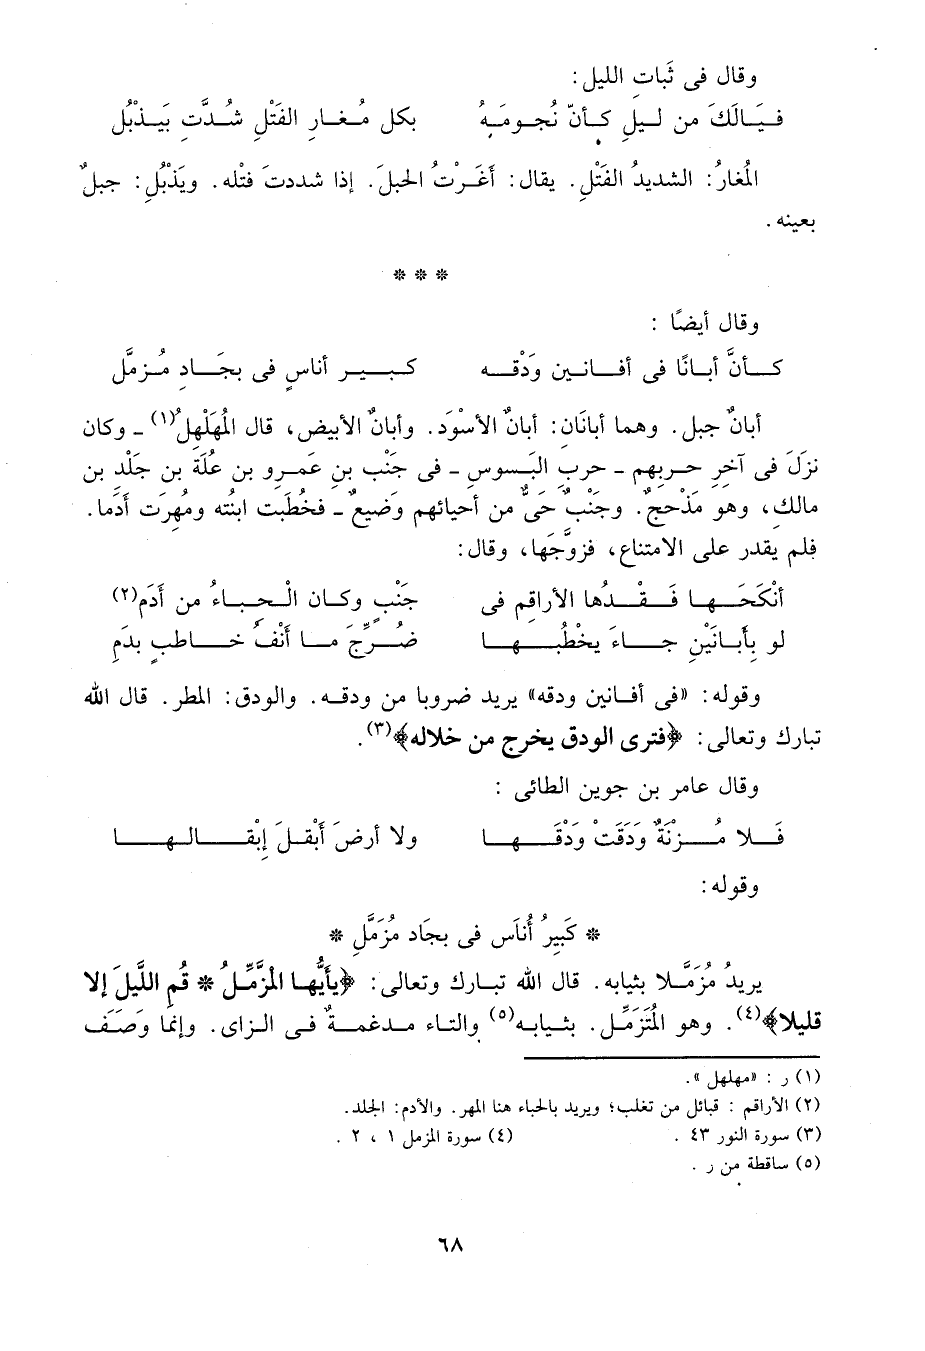 وقال فى ثَبات الليل:
فـيَـالَكَ من لـيلٍ كـأنّ نُجـومَـهُ بكل مُـغـار الفَتْلِ شُـدَّت بِيَـذْبُلِ
المُغارُ: الشديدُ الفَتْلِ. يقال: أَغَـرْتُ الحبلَ. إذا شددتَ فتْله. ويَذْبُل: جبلٌ
بعينه.
* * *
وقال أيضًا :
كـأنَّ أبـانًا فى أفـانـين ودْقـه كـبـيـر أناسٍ فى بجَـاد مُـزمَّل
أبانٌ جبل. وهما أبانَان: أبانٌ الأسْوَد. وأبانٌ الأبيض، قال المُهَلْهلُ(١) ـ وكان
نزلَ فى آخرِ حـربهم ـ حربِ البَـسوسِ ـ فى جَنْب بن عَمـرو بن عُلَة بن جَلْد بن
مالك، وهو مَذْحجٌ. وجَنْبٌ حَىٌّ من أحيائهم وَضيعٌ ـ فخُطبَت ابنتُه ومُهِرَت أَدَما.
فلم يقدر على الامتناع، فزوَّجَها، وقال:
أنْكَحَـهـا فَـقْـدُها الأراقم فى جَنْبٍ وكـان الـحِـبـاءُ من أدَمِ(٢)
لو بأَبـانَيْن جـاءَ يخْطُبـهـا ضُـرِّجَ مـا أَنْفُ خـاطبٍ بدَمِ
وقوله: «فى أفـانين ودقه» يريد ضروبا من ودقـه. والودق: المطر. قال الله
تبارك وتعالى: ﴿فترى الودق يخرج من خلاله﴾(٣).
وقال عامر بن جوين الطائى :
فَـلا مُـزنَةٌ وَدَقَتْ وَدْقَـهـا ولا أرضَ أَبْقـلَ إِبْقـالـهـا
وقوله:
* كَبيرُ أُناَس فى بجَاد مُزَمَّلِ *
يريدُ مُزَمَّـلا بثيابه. قال الله تبـارك وتعالى: ﴿يأَيُّها المُزَّمِّـلُ * قُمِ اللَّيلَ إلا
قليلا﴾(٤). وهو المُتَزَمِّـل. بثيابـه(٥) والتاء مـدغمـةٌ فى الـزاى. وإنما وَصَـف
(١) ر : «مهلهل».
(٢) الأراقم : قبائل من تغلب؛ ويريد بالحباء هنا المهر. والأدم: الجلد.
(٣) سورة النور ٤٣ . (٤) سورة المزمل ١ ، ٢ .
(٥) ساقطة من ر .
٦٨